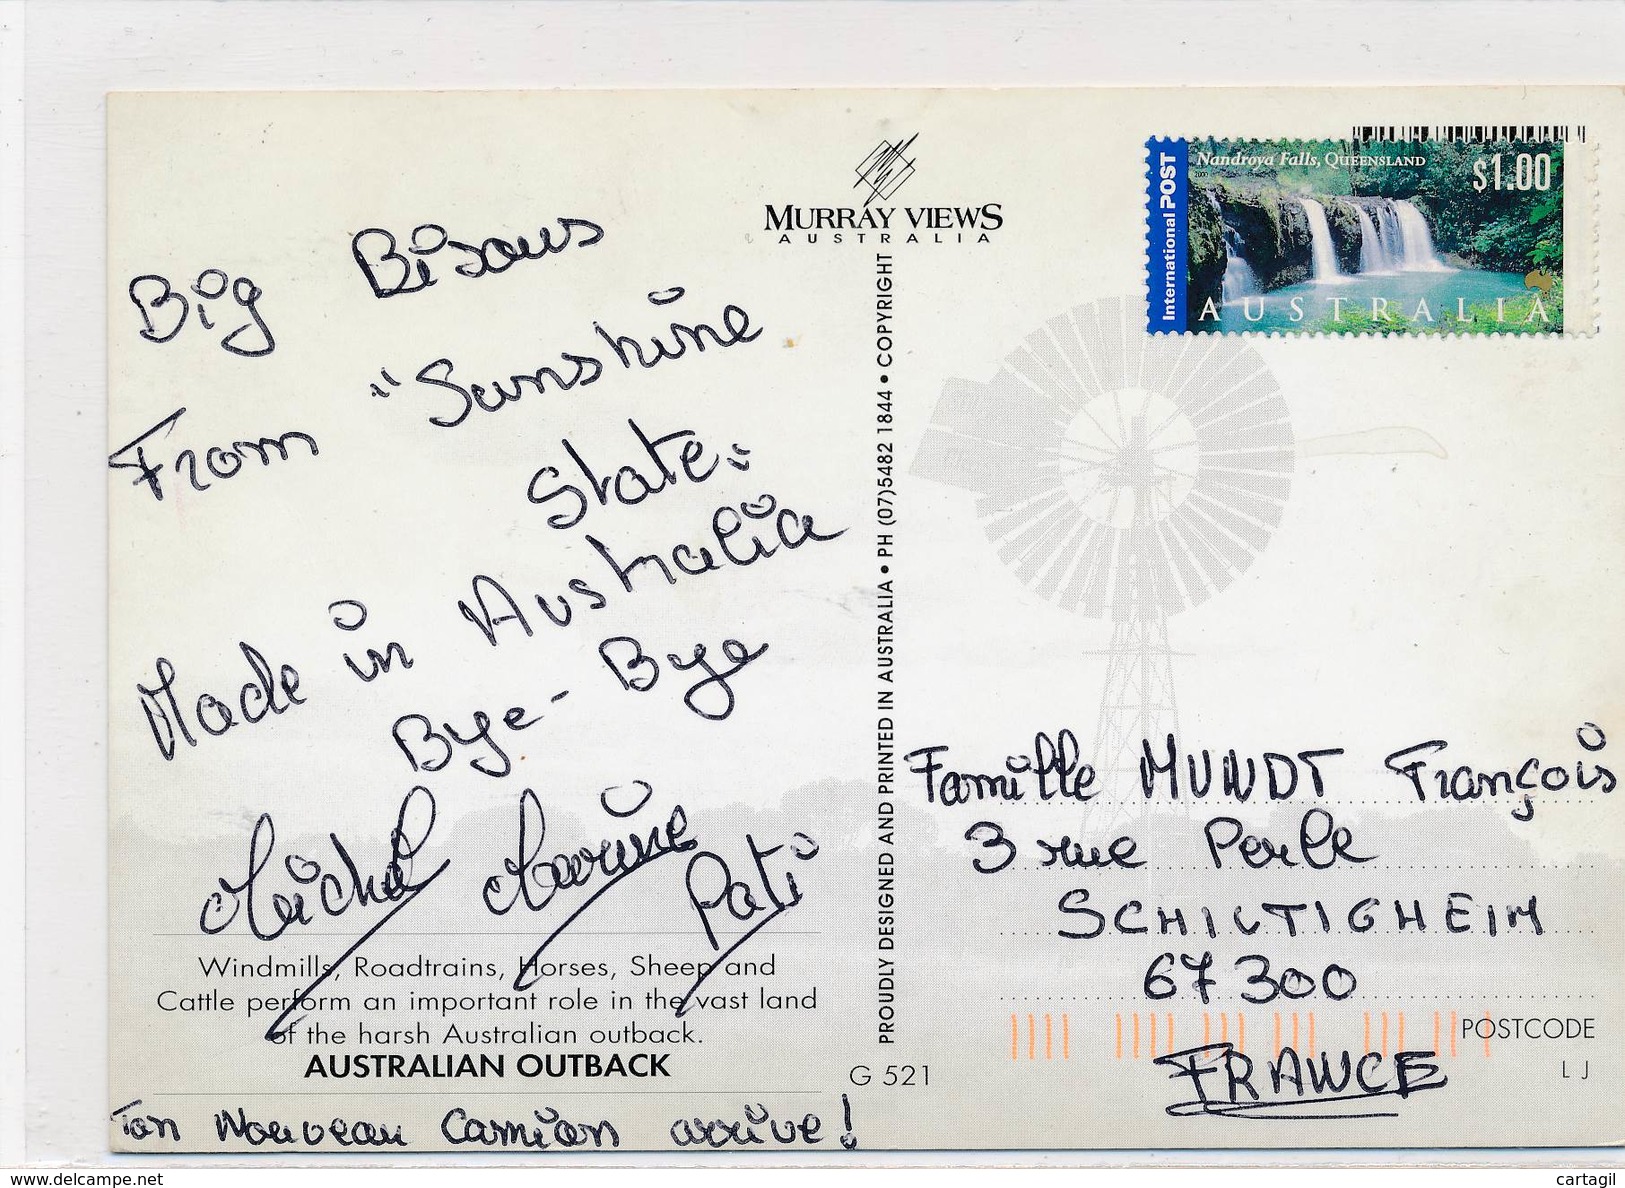 Nandroya Falls, QUEENSLAND
2000
$1.00
International POST
AUSTRALIA
MURRAY VIEWS
AUSTRALIA
Big Bisous
From "Sunshine
State"
Made in Australia
Bye-Bye
Michel Marine Pati
Windmills, Roadtrains, Horses, Sheep and
Cattle perform an important role in the vast land
of the harsh Australian outback.
AUSTRALIAN OUTBACK
G 521
Ton Nouveau Camion arrive!
PROUDLY DESIGNED AND PRINTED IN AUSTRALIA • PH (07)5482 1844 • COPYRIGHT
Famille MUNDT François
3 rue Perle
SCHILTIGHEIM
67300
POSTCODE
LJ
FRANCE
www.delcampe.net
cartagil